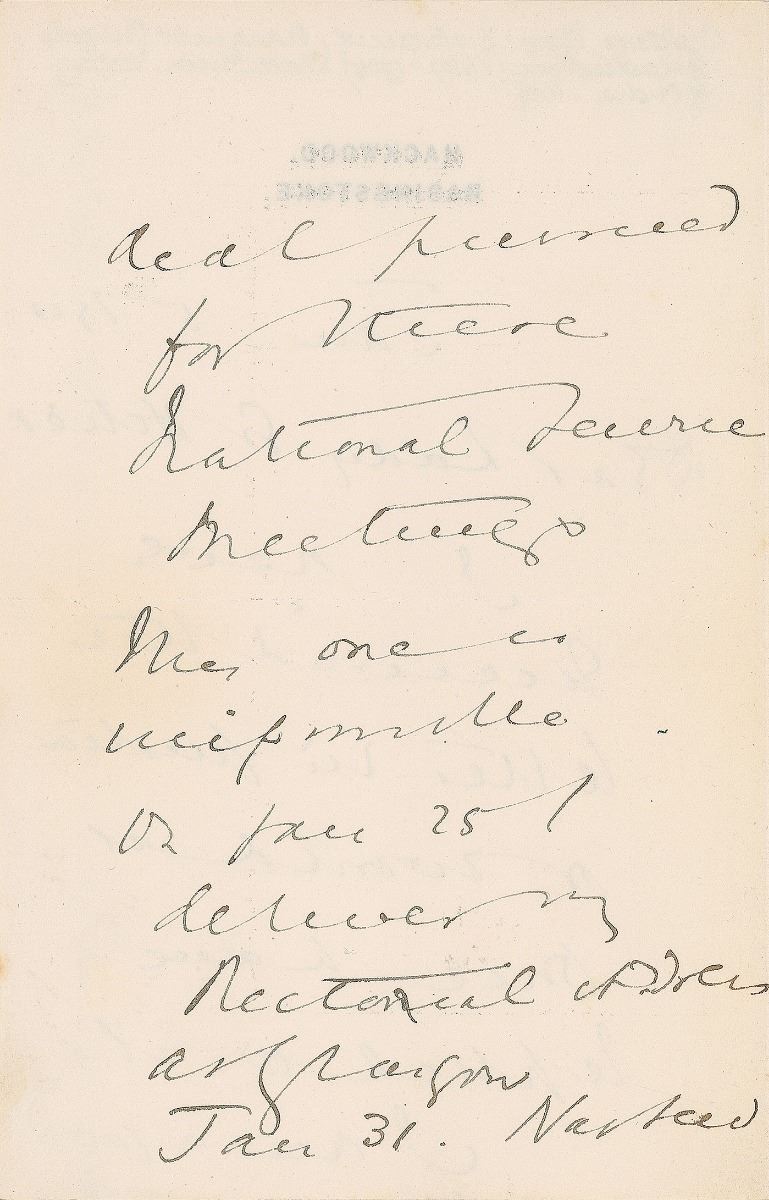 deal pursued
for these
National Service
Meetings
This one is
impossible
On Jan 25 I
deliver my
Rectorial Address
at Glasgow
Jan 31.